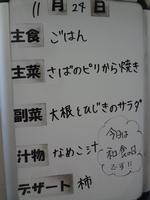 11月24日
主食 ごはん
主菜 さばのピリから焼き
副菜 大根とひじきのサラダ
汁物 なめこ汁
今日は
和食の日
です!!
デザート 柿